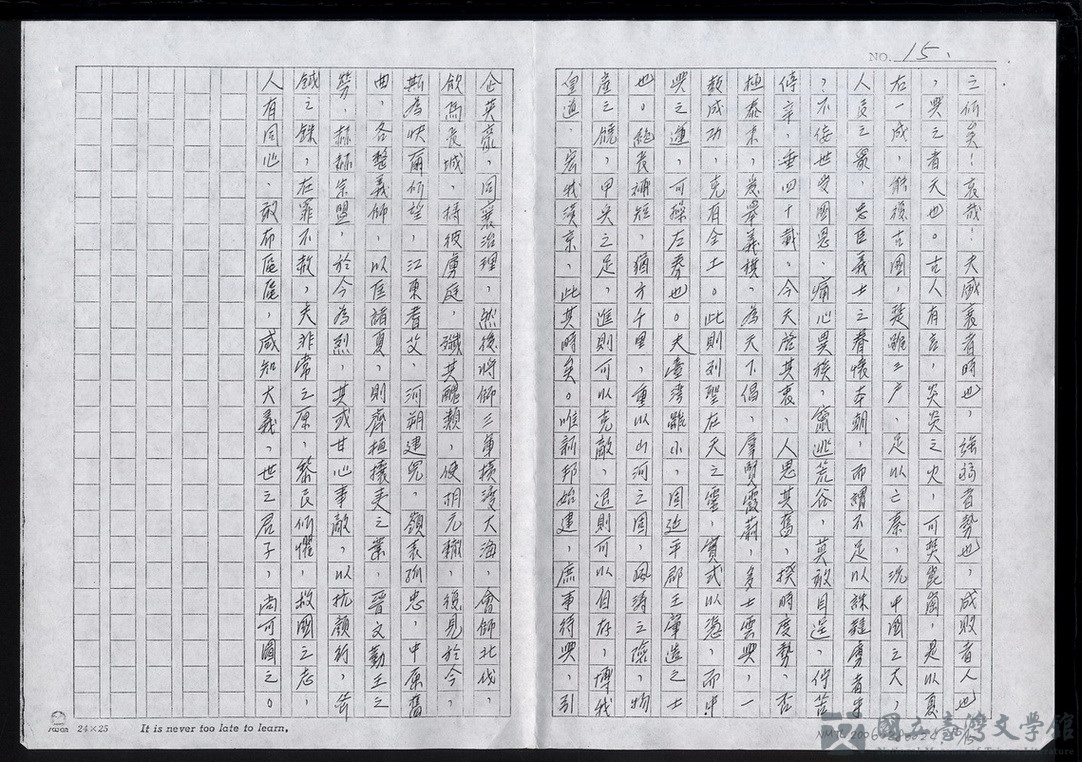 NO. 15.
之何矣！哀哉！夫盛衰者時也，強弱者勢也，成敗者人也
，興之者天也。古人有言，炎炎之火，可焚崑崗，是以夏
右一成，能復古國，楚雖三户，足以亡秦，況中國之大，
人民之眾，忠臣義士之眷懷本朝，而謂不足以誅韃虜者乎
？不佞世受國恩，痛心異族，竄逃荒谷，莫敢自遑，佇苦
停辛，垂四十載，今天啓其衷，人思其舊，揆時度勢，否
極泰來，爰舉義檄，為天下倡，群賢霞蔚，多士雲興，一
鼓成功，克有全土。此則列聖在天之靈，實式以憑，而中
興之運，可操左券也。夫臺灣雖小，固延平郡王肇造之土
也。絕長補短，猶方千里，重以山河之固，風濤之險，物
產之饒，甲兵之足，進則可以克敵，退則可以自存，博我
皇道，宏我漢京，此其時矣。唯新邦始建，庶事待興，引
企英豪，同襄治理，然後將帥三軍橫渡大海，會師北伐，
飲馬長城，搗彼虜庭，殲其醜類，使胡元轍，復見於今，
斯為快爾何望，江東耆艾，河朔建兒，嶺表孤忠，中原舊
曲，各整義師，以匡諸夏，則齊桓攘夷之業，晉文勤王之
勞，赫赫宗盟，於今為烈，其或甘心事敵，以抗顏行，斧
鉞之誅，在罪不赦，夫非常之原，黎民何懼，救國之志，
人有同心，敢布區區，咸知大義，世之君子，尚可圖之。
24×25
It is never too late to learn.
國立臺灣文學館
National Museum of Taiwan Literature